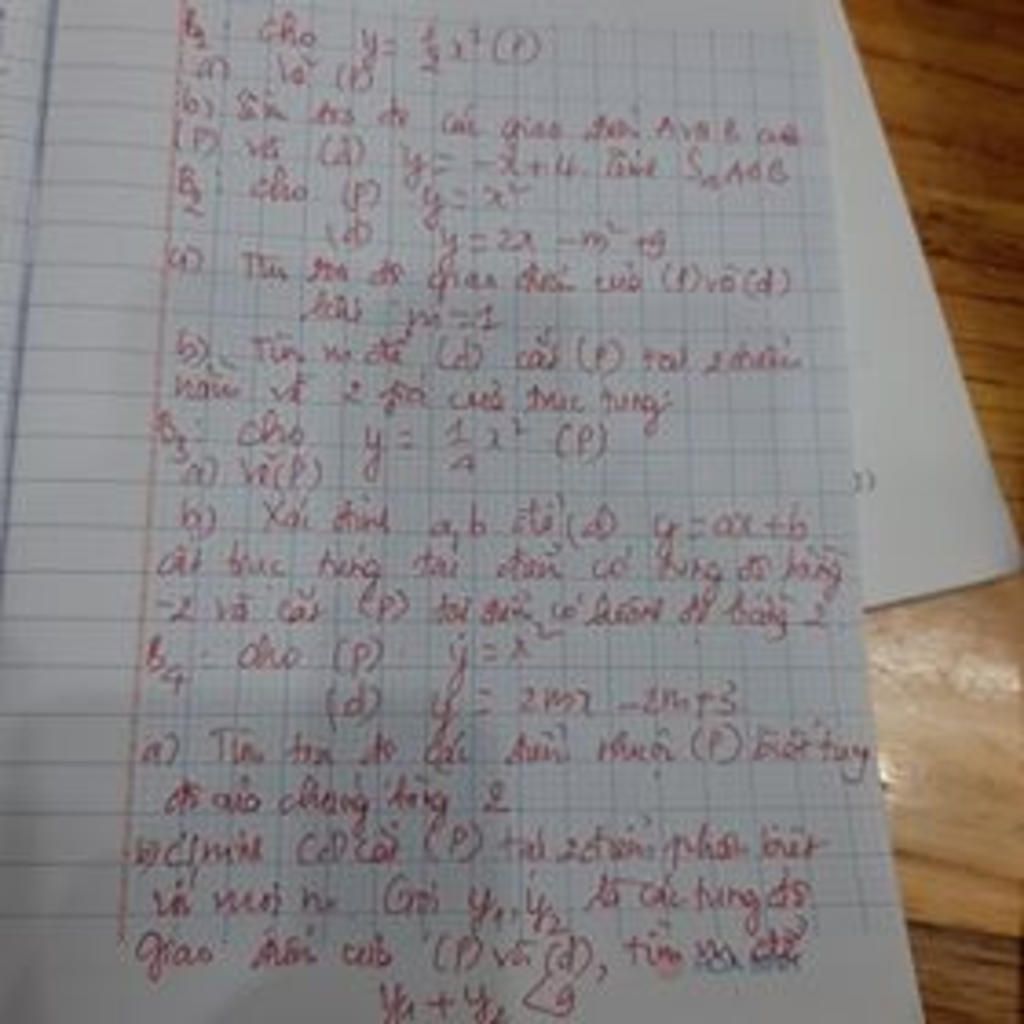 B1: cho y = 1/2 x² (P)
a) Vẽ (P)
b) Tìm tọa độ các giao điểm A và B của
(P) và (d) y = -x+4. Tính S△AOB
B2: cho (P) y = x²
(d) y = 2x - m² + 9
a) Tìm tọa độ giao điểm của (P) và (d)
khi m = 1
b) Tìm m để (d) cắt (P) tại 2 điểm
nằm về 2 phía của trục tung.
B3: cho y = 1/4 x² (P)
a) vẽ (P)
b) Xác định a, b để (d) y = ax + b
cắt trục tung tại điểm có tung độ bằng
-2 và cắt (P) tại điểm có hoành độ bằng 2
B4: cho (P) y = x²
(d) y = 2mx - 2m + 3
a) Tìm tọa độ các điểm thuộc (P) biết tung
độ của chúng bằng 2
b) C/minh (d) cắt (P) tại 2 điểm phân biệt
với mọi m. Gọi y₁, y₂ là các tung độ
giao điểm của (P) và (d), tìm m để
y₁ + y₂ < 9